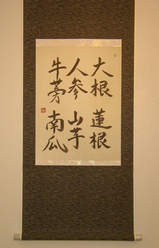 大根 蓮根
人参 山芋
牛蒡 南瓜